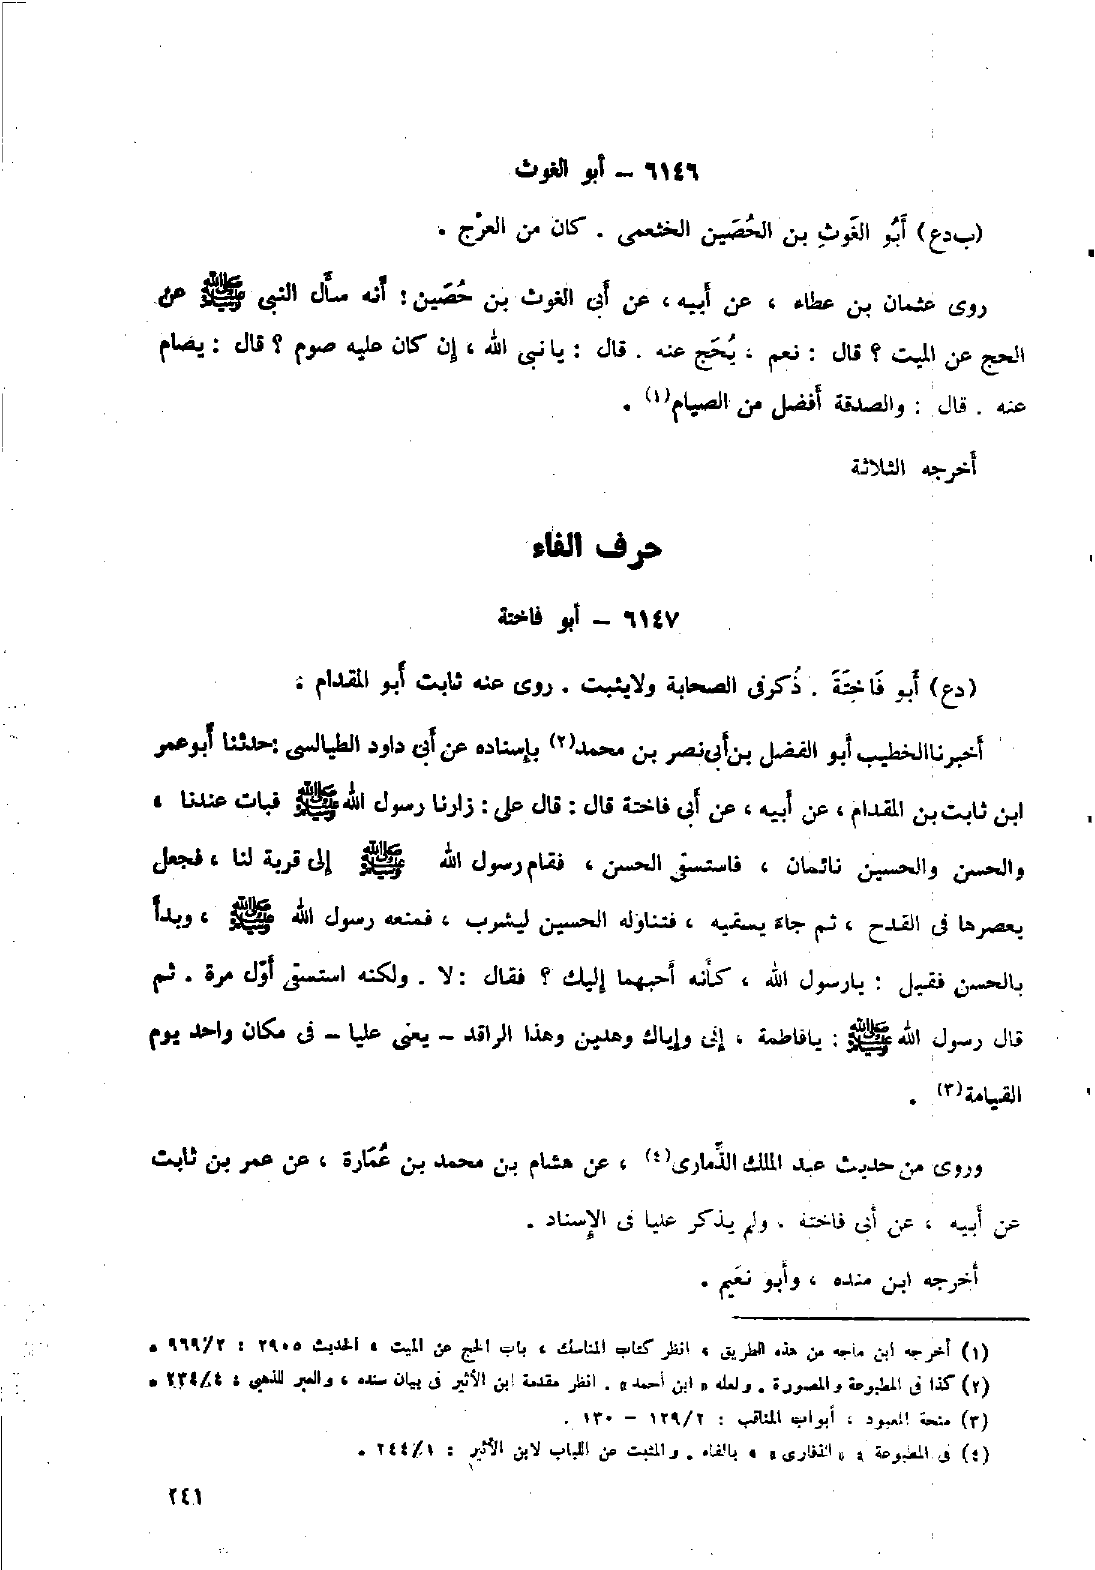 ٦١٤٦ – أبو الغوث
(ب د ع) أَبُو الغَوثِ بن الحُصَين الخثعمى . كان من العرْج .
روى عثمان بن عطاء ، عن أبيه ، عن أبى الغوث بن حُصَين : أنه سأل النبى ﷺ عن
الحج عن الميت ؟ قال : نعم ، يُحَج عنه . قال : يا نبى الله ، إن كان عليه صوم ؟ قال : يصام
عنه . قال : والصدقة أفضل من الصيام(١) .
أخرجه الثلاثة
حرف الفاء
٦١٤٧ – أبو فاختة
(د ع) أبو فَاخِتَةَ . ذُكر فى الصحابة ولا يثبت . روى عنه ثابت أبو المقدام :
أخبرنا الخطيب أبو الفضل بن أبى نصر بن محمد(٢) بإسناده عن أبى داود الطيالسى : حدثنا أبو عمر
ابن ثابت بن المقدام ، عن أبيه ، عن أبى فاختة قال : قال على : زارنا رسول الله ﷺ فبات عندنا ،
والحسن والحسين نائمان ، فاستسقى الحسن ، فقام رسول الله ﷺ إلى قربة لنا ، فجعل
يعصرها فى القدح ، ثم جاء يسقيه ، فتناوله الحسين ليشرب ، فمنعه رسول الله ﷺ ، وبدأ
بالحسن فقيل : يا رسول الله ، كأنه أحبهما إليك ؟ فقال : لا . ولكنه استسقى أوّل مرة . ثم
قال رسول الله ﷺ : يا فاطمة ، إنى وإياك وهذين وهذا الراقد – يعنى عليا – فى مكان واحد يوم
القيامة(٣) .
وروى من حديث عبد الملك الذِّمارى(٤) ، عن هشام بن محمد بن عُمَارة ، عن عمر بن ثابت
عن أبيه ، عن أبى فاختة . ولم يذكر عليا فى الإسناد .
أخرجه ابن منده ، وأبو نعَيم .
(١) أخرجه ابن ماجه من هذه الطريق ، انظر كتاب المناسك ، باب الحج عن الميت ، الحديث ٢٩٠٥ : ٩٦٩/٢ .
(٢) كذا فى المطبوعة والمصورة . ولعله « ابن أحمد » . انظر مقدمة ابن الأثير فى بيان سنده ، والعبر للذهبى : ٢٣٤/٤ .
(٣) منحة المعبود ، أبواب المناقب : ١٢٩/٢ – ١٣٠ .
(٤) فى المطبوعة « الذفارى » ، بالفاء . والمثبت عن اللباب لابن الأثير : ٢٤٤/١ .
٢٤١